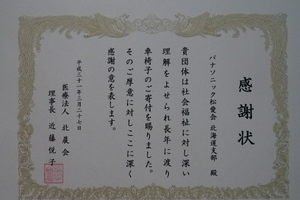 感謝状
パナソニック松愛会 北海道支部 殿
貴団体は社会福祉に対し深い
理解をよせられ長年に渡り
車椅子のご寄付を賜りました。
そのご厚意に対しここに深く
感謝の意を表します。
平成三十一年三月二十七日
医療法人 北晨会
理事長 近藤 悦子